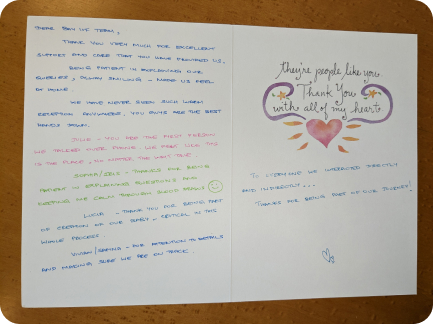 DEAR BAY IVF TEAM,
THANK YOU VERY MUCH FOR EXCELLENT
SUPPORT AND CARE THAT YOU HAVE PROVIDED US,
BEING PATIENT IN EXPLAINING OUR
QUERIES, ALWAYS SMILING - MADE US FEEL
AT HOME.
WE HAVE NEVER SEEN SUCH WARM
RECEPTION ANYWHERE, YOU GUYS ARE THE BEST
HANDS DOWN.
- YOU ARE THE FIRST PERSON
WE TALKED OVER PHONE. WE FELT LIKE THIS
IS THE PLACE, NO MATTER THE WAIT TIME.
- THANKS FOR BEING
PATIENT IN EXPLAINING QUESTIONS AND
KEEPING ME CALM THROUGH BLOOD DRAW
- THANK YOU FOR BEING PART
OF CREATION OF OUR BABY - CRITICAL IN THIS
WHOLE PROCESS.
- FOR ATTENTION TO DETAILS
AND MAKING SURE WE ARE ON TRACK.
they're people like you
Thank You
with all of my heart
TO EVERYONE WE INTERACTED DIRECTLY
AND INDIRECTLY...
THANKS FOR BEING PART OF OUR JOURNEY!